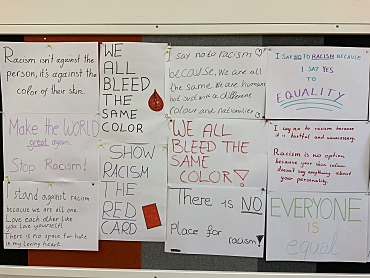 Racism isn't against the
person, it's against the
color of their skin.
Make the WORLD
great again.
Stop Racism!
I stand against racism
because we are all one.
Love each other like
you love yourself!
There is no space for hate
in my loving heart.
WE
ALL
BLEED
THE
SAME
COLOR
SHOW
RACISM
THE
RED
CARD
I say no to racism
because, We are all
the same. We are human
but just with a different
colour and nationalities
WE ALL
BLEED THE
SAME
COLOR!
There is NO
Place for
racism
I SAID NO TO RACISM BECAUSE
I SAY YES
TO
EQUALITY
I say no to racism because
it is hurtful and unnecessary.
Racism is no option
because your skin colour
doesn't say anything about
your personality.
EVERYONE
IS
equal